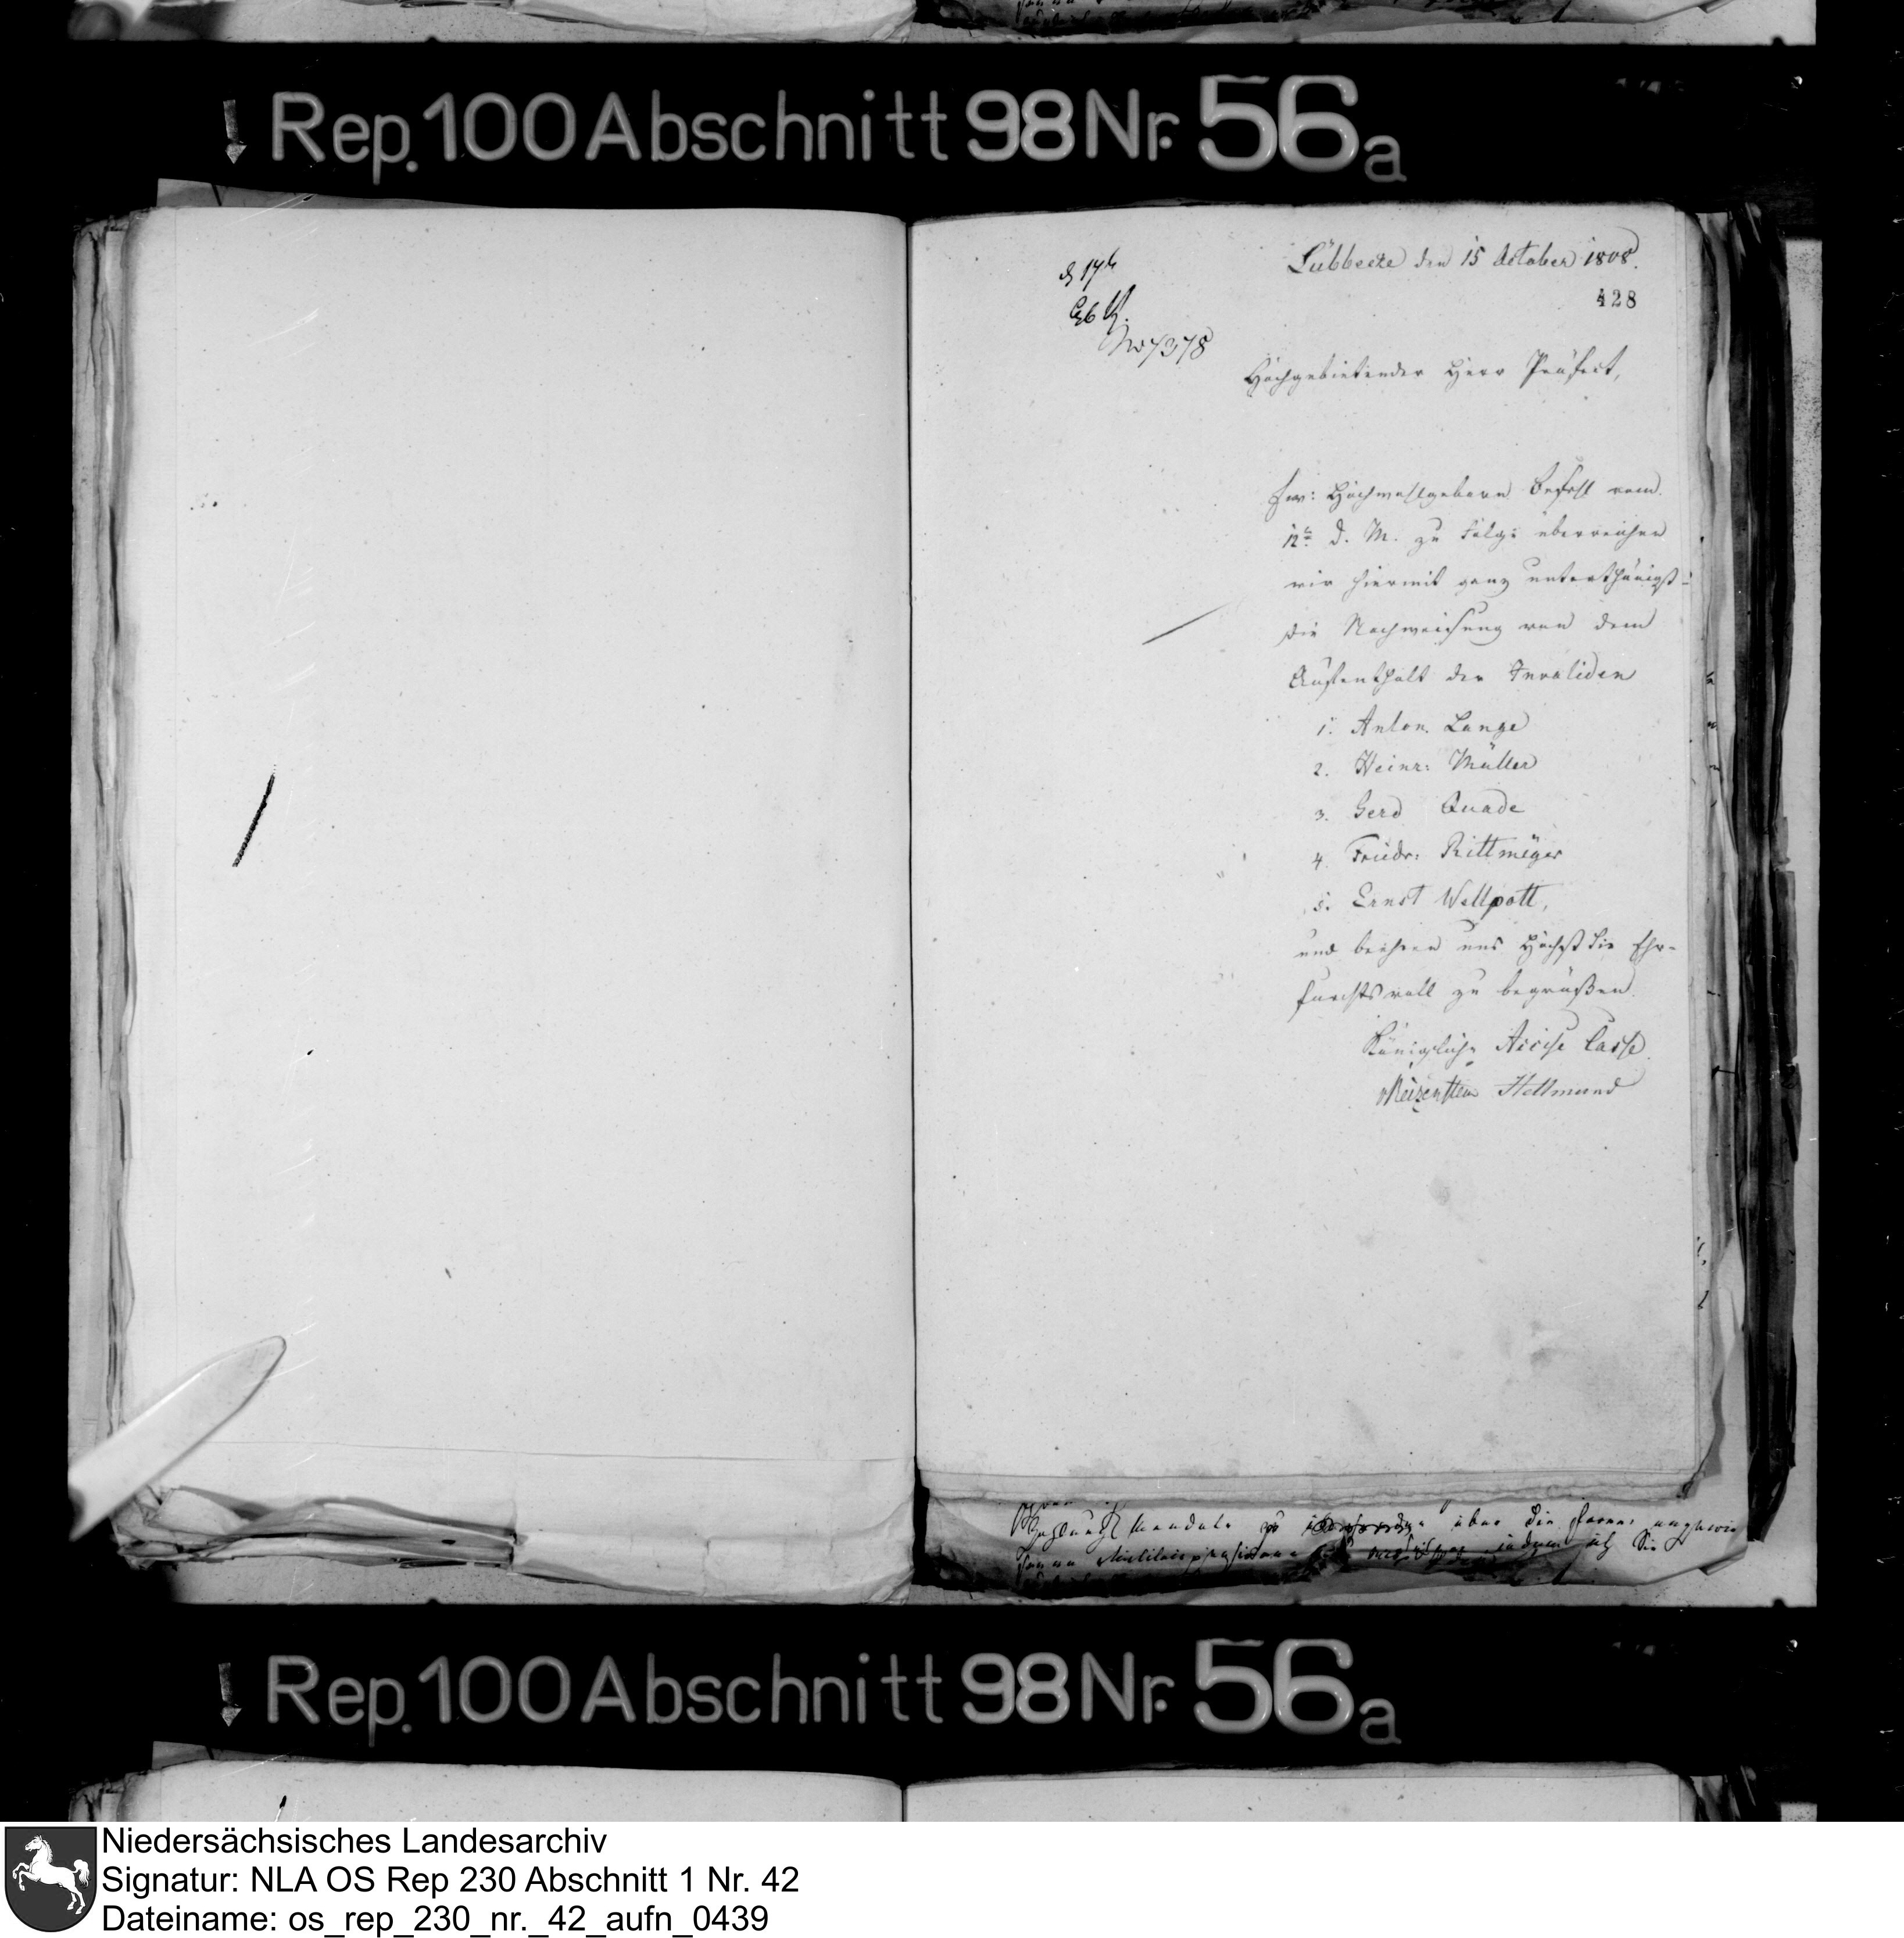 Rep. 100 Abschnitt 98 Nr. 56a
Lübbecke den 15 October 1808.
428
No 7378
Hochgebietender Herr Präfect,
Ew: Hochwollgeborn Befehl vom
12ten d. M. zu Folge überreichen
wir hiermit ganz unterthänigst
die Nachweisung von dem
Aufenthalt der Invaliden
1. Anton Lange
2. Heinr: Müller
3. Gerd Quade
4. Friedr: Rittmeyer
5. Ernst Wellpott,
und beehren uns Höchst Sie Ehr-
furchtsvoll zu begrüßen.
Königliche Accise Casse
Hellmund
über die
ich Sie
Rep. 100 Abschnitt 98 Nr. 56a
Niedersächsisches Landesarchiv
Signatur: NLA OS Rep 230 Abschnitt 1 Nr. 42
Dateiname: os_rep_230_nr._42_aufn_0439